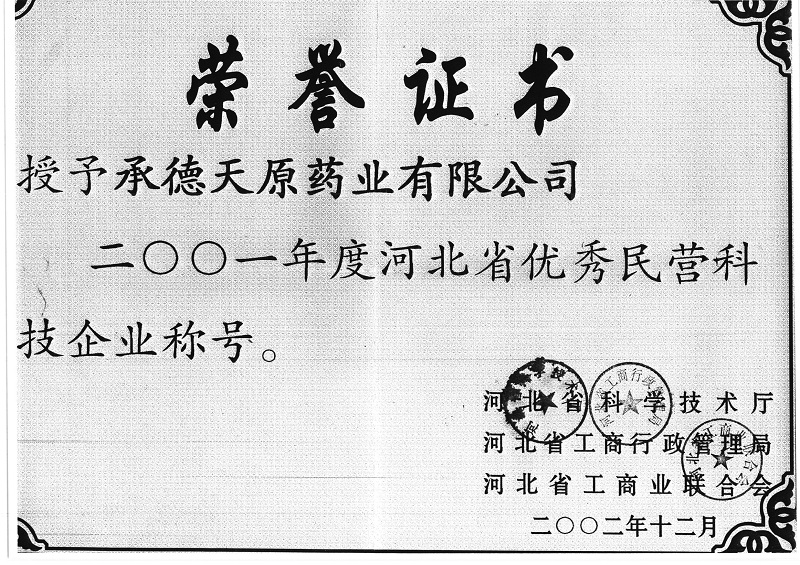 荣誉证书
授予承德天原药业有限公司
二〇〇一年度河北省优秀民营科
技企业称号。
河北省科学技术厅
河北省工商行政管理局
河北省工商业联合会
二〇〇二年十二月